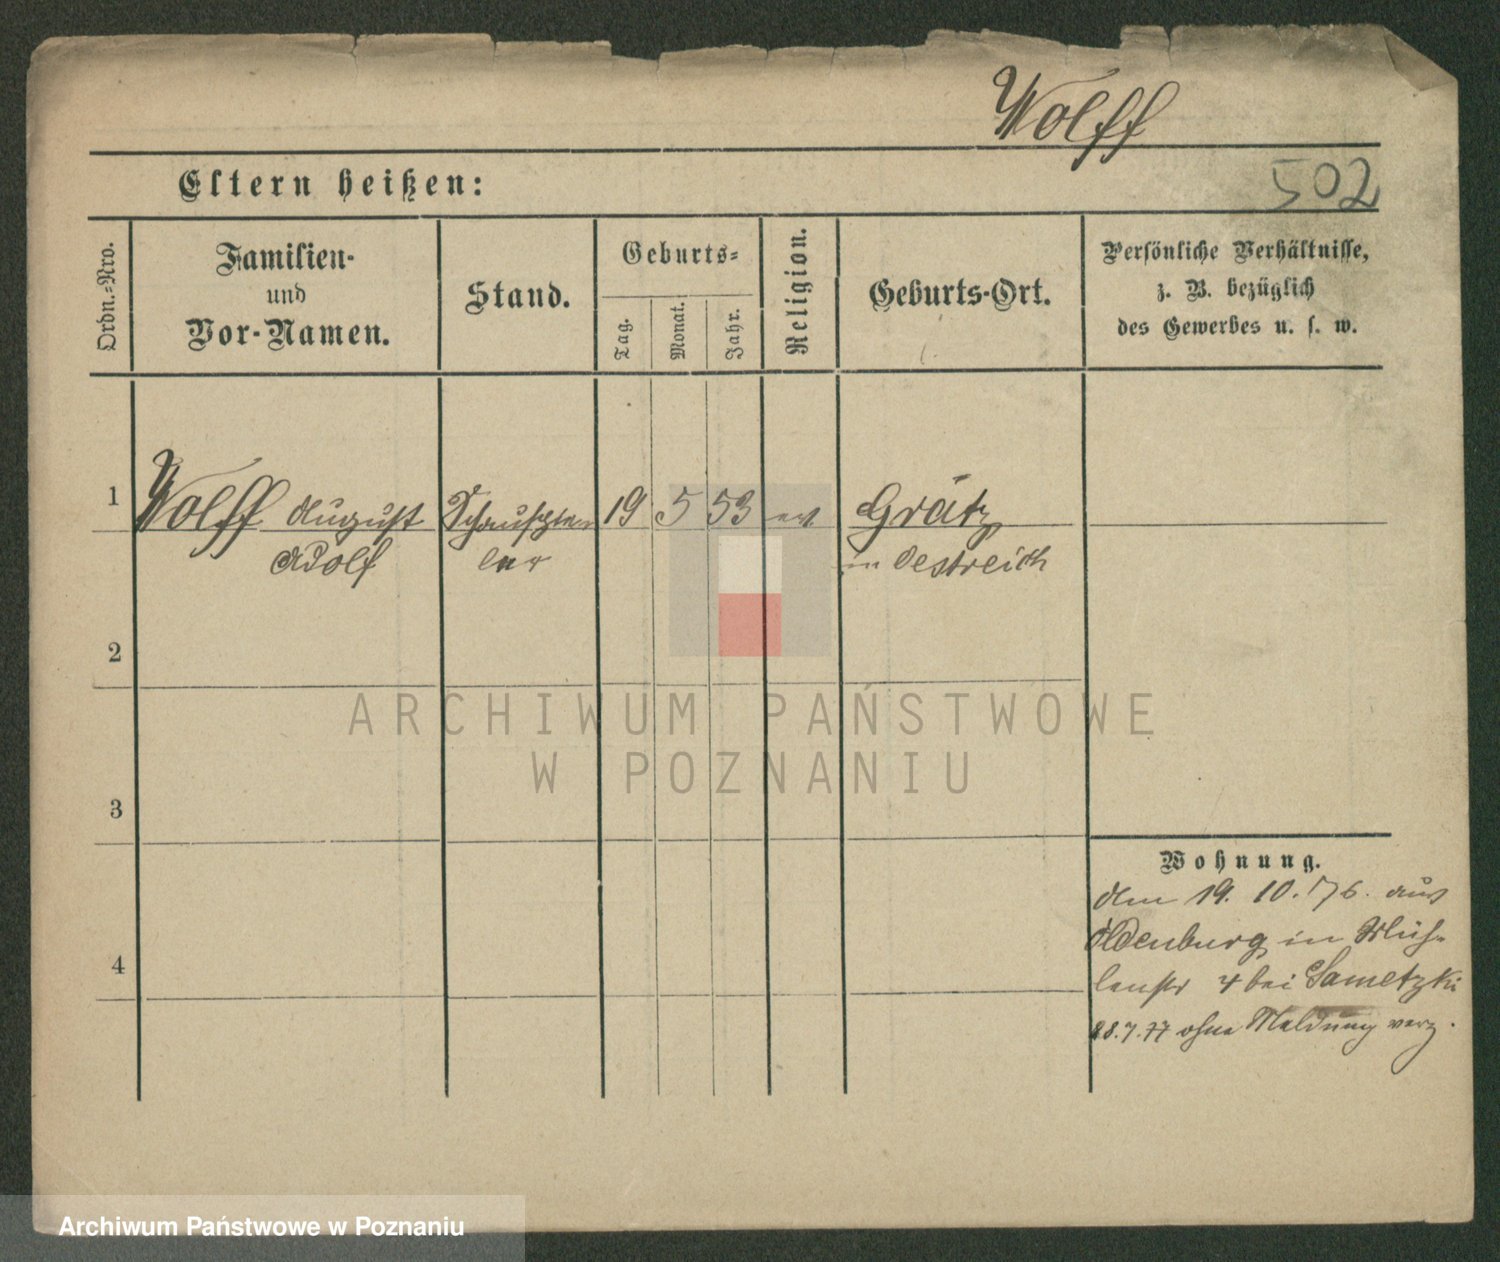 Wolff
Eltern heißen:
502
Ordn.-Nro.
Familien-
und
Vor-Namen.
Stand.
Geburts-
Tag.
Monat.
Jahr.
Religion.
Geburts-Ort.
Persönliche Verhältnisse,
z. B. bezüglich
des Gewerbes u. s. w.
1 Wolff August Schauspie- 19 5 53 ev Grätz
Adolf ler in Oestreich
2
3
4
Wohnung.
den 19. 10. 76. aus
Oldenburg in Müh-
lenstr 4 bei Sametzki
28.7.77 ohne Meldung verz.
ARCHIWUM PAŃSTWOWE
W POZNANIU
Archiwum Państwowe w Poznaniu